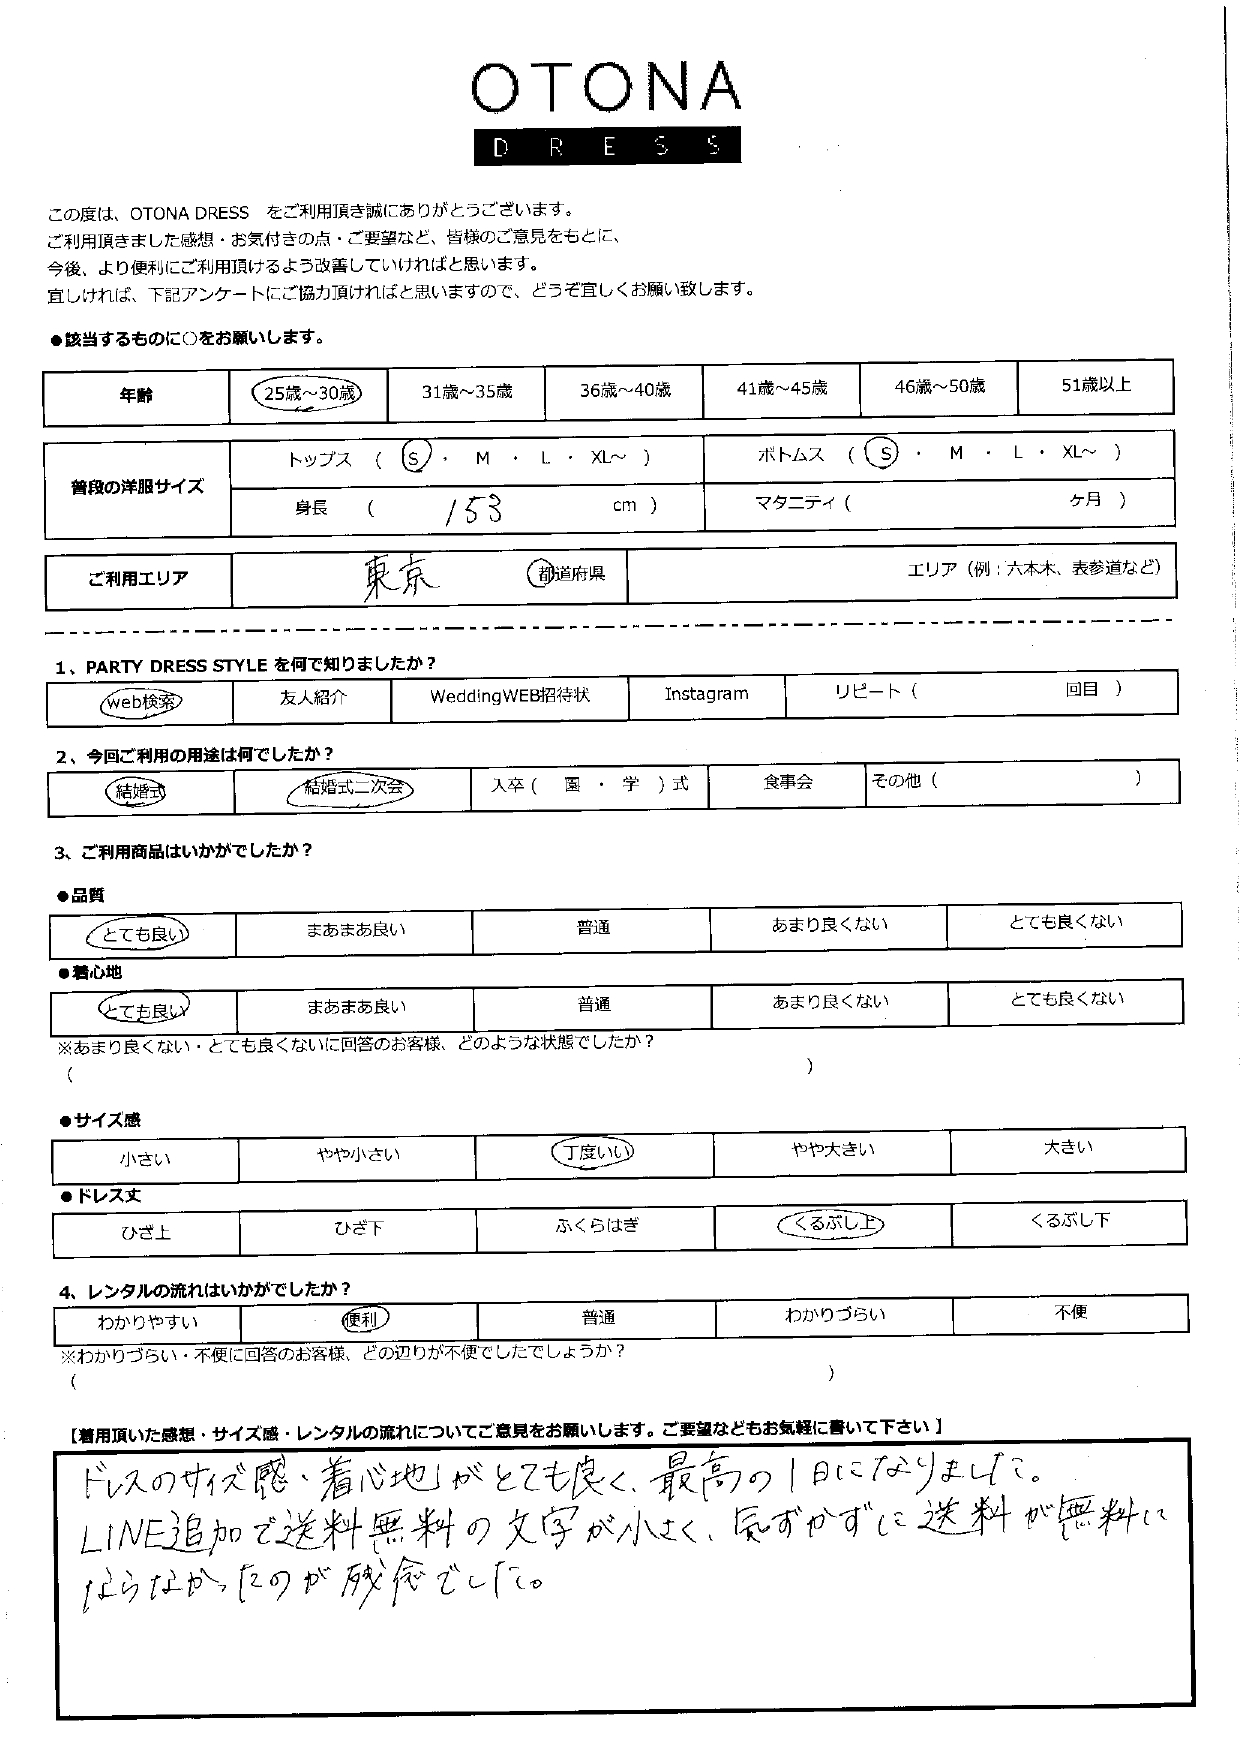 OTONA
DRESS
この度は、OTONA DRESS　をご利用頂き誠にありがとうございます。
ご利用頂きました感想・お気付きの点・ご要望など、皆様のご意見をもとに、
今後、より便利にご利用頂けるよう改善していければと思います。
宜しければ、下記アンケートにご協力頂ければと思いますので、どうぞ宜しくお願い致します。
●該当するものに○をお願いします。
年齢 25歳～30歳 31歳～35歳 36歳～40歳 41歳～45歳 46歳～50歳 51歳以上
普段の洋服サイズ トップス （ S ・ M ・ L ・ XL～ ） ボトムス （ S ・ M ・ L ・ XL～ ）
身長 （ 153 cm ） マタニティ（ ケ月 ）
ご利用エリア 東京 都道府県 エリア（例：六本木、表参道など）
1、PARTY DRESS STYLE を何で知りましたか？
web検索 友人紹介 WeddingWEB招待状 Instagram リピート（ 回目 ）
2、今回ご利用の用途は何でしたか？
結婚式 結婚式二次会 入卒（ 園 ・ 学 ）式 食事会 その他（ ）
3、ご利用商品はいかがでしたか？
●品質
とても良い まあまあ良い 普通 あまり良くない とても良くない
●着心地
とても良い まあまあ良い 普通 あまり良くない とても良くない
※あまり良くない・とても良くないに回答のお客様、どのような状態でしたか？
（ ）
●サイズ感
小さい やや小さい 丁度いい やや大きい 大きい
●ドレス丈
ひざ上 ひざ下 ふくらはぎ くるぶし上 くるぶし下
4、レンタルの流れはいかがでしたか？
わかりやすい 便利 普通 わかりづらい 不便
※わかりづらい・不便に回答のお客様、どの辺りが不便でしたでしょうか？
（ ）
【着用頂いた感想・サイズ感・レンタルの流れについてご意見をお願いします。ご要望などもお気軽に書いて下さい】
ドレスのサイズ感・着心地がとても良く、最高の1日になりました。
LINE追加で送料無料の文字が小さく、気ずかずに送料が無料に
ならなかったのが残念でした。